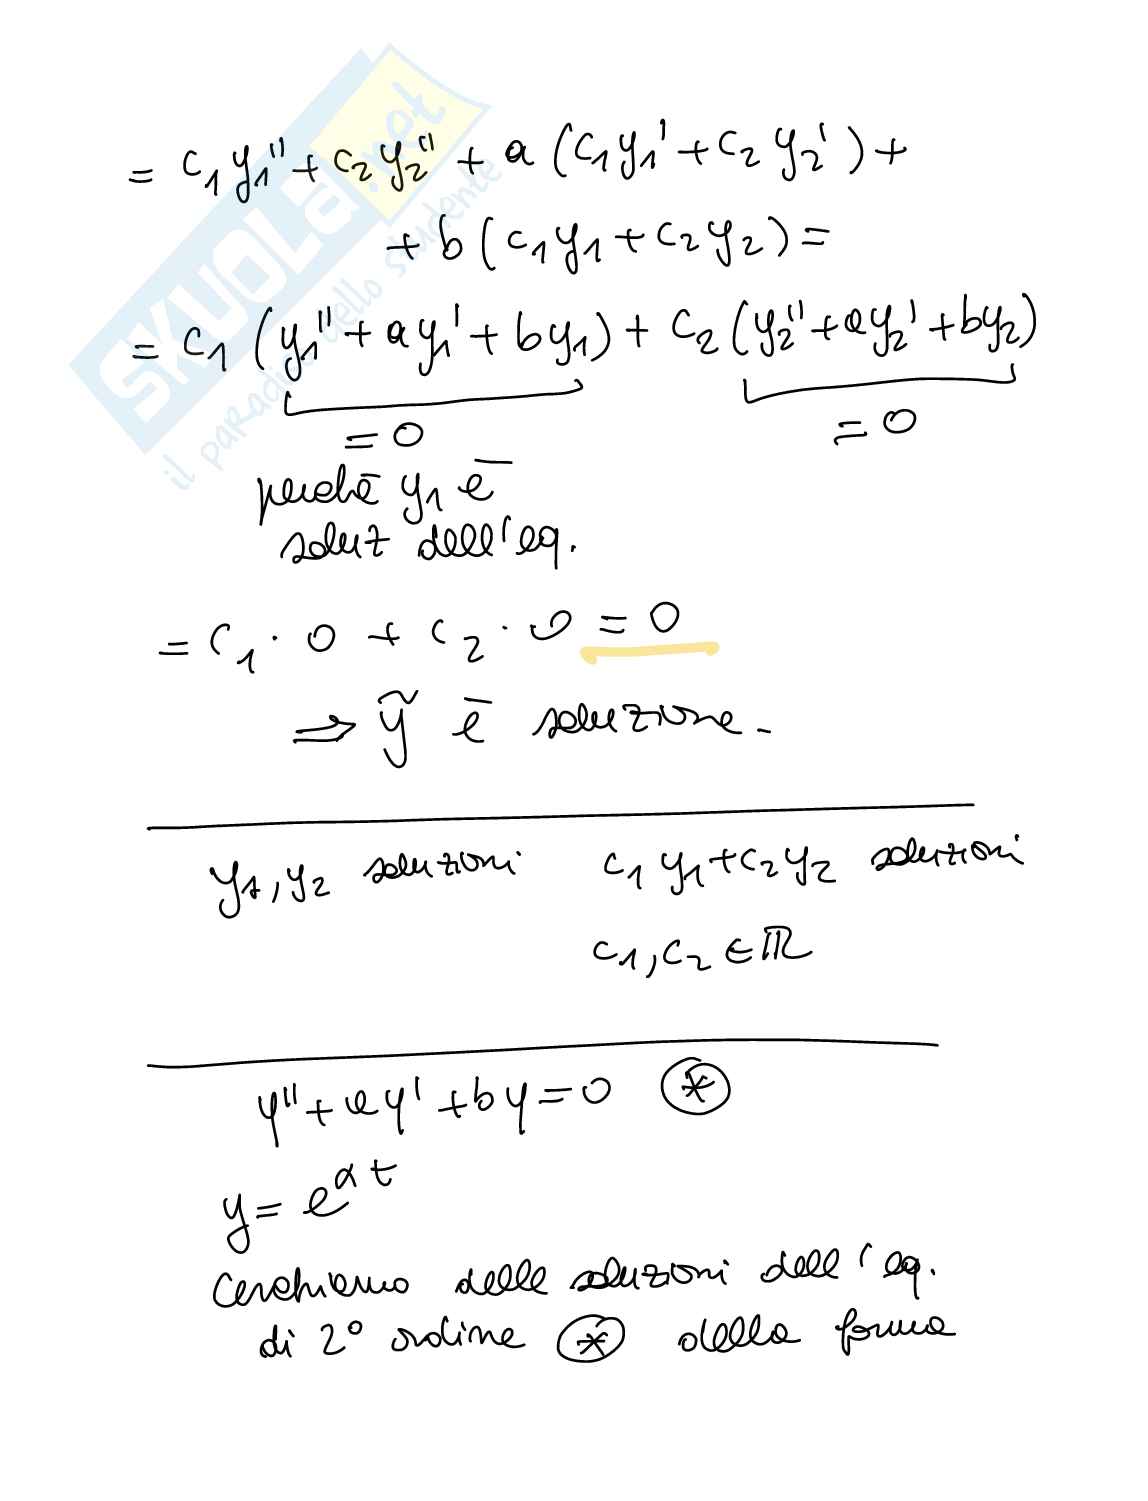 = c₁y₁'' + c₂y₂'' + a (c₁y₁' + c₂y₂') +
+ b (c₁y₁ + c₂y₂) =
= c₁ (y₁'' + ay₁' + by₁) + c₂ (y₂'' + ay₂' + by₂)
= 0 = 0
perchē y₁ ē
soluz dell'eq.
= c₁ · 0 + c₂ · 0 = 0
⇒ ỹ ē soluzione.
y₁, y₂ soluzioni c₁y₁ + c₂y₂ soluzioni
c₁, c₂ ∈ ℝ
y'' + ay' + by = 0 ⊛
y = e^{αt}
Cerchiamo delle soluzioni dell'eq.
di 2° ordine ⊛ della forma
SKUOLA.net
il paradiso dello studente